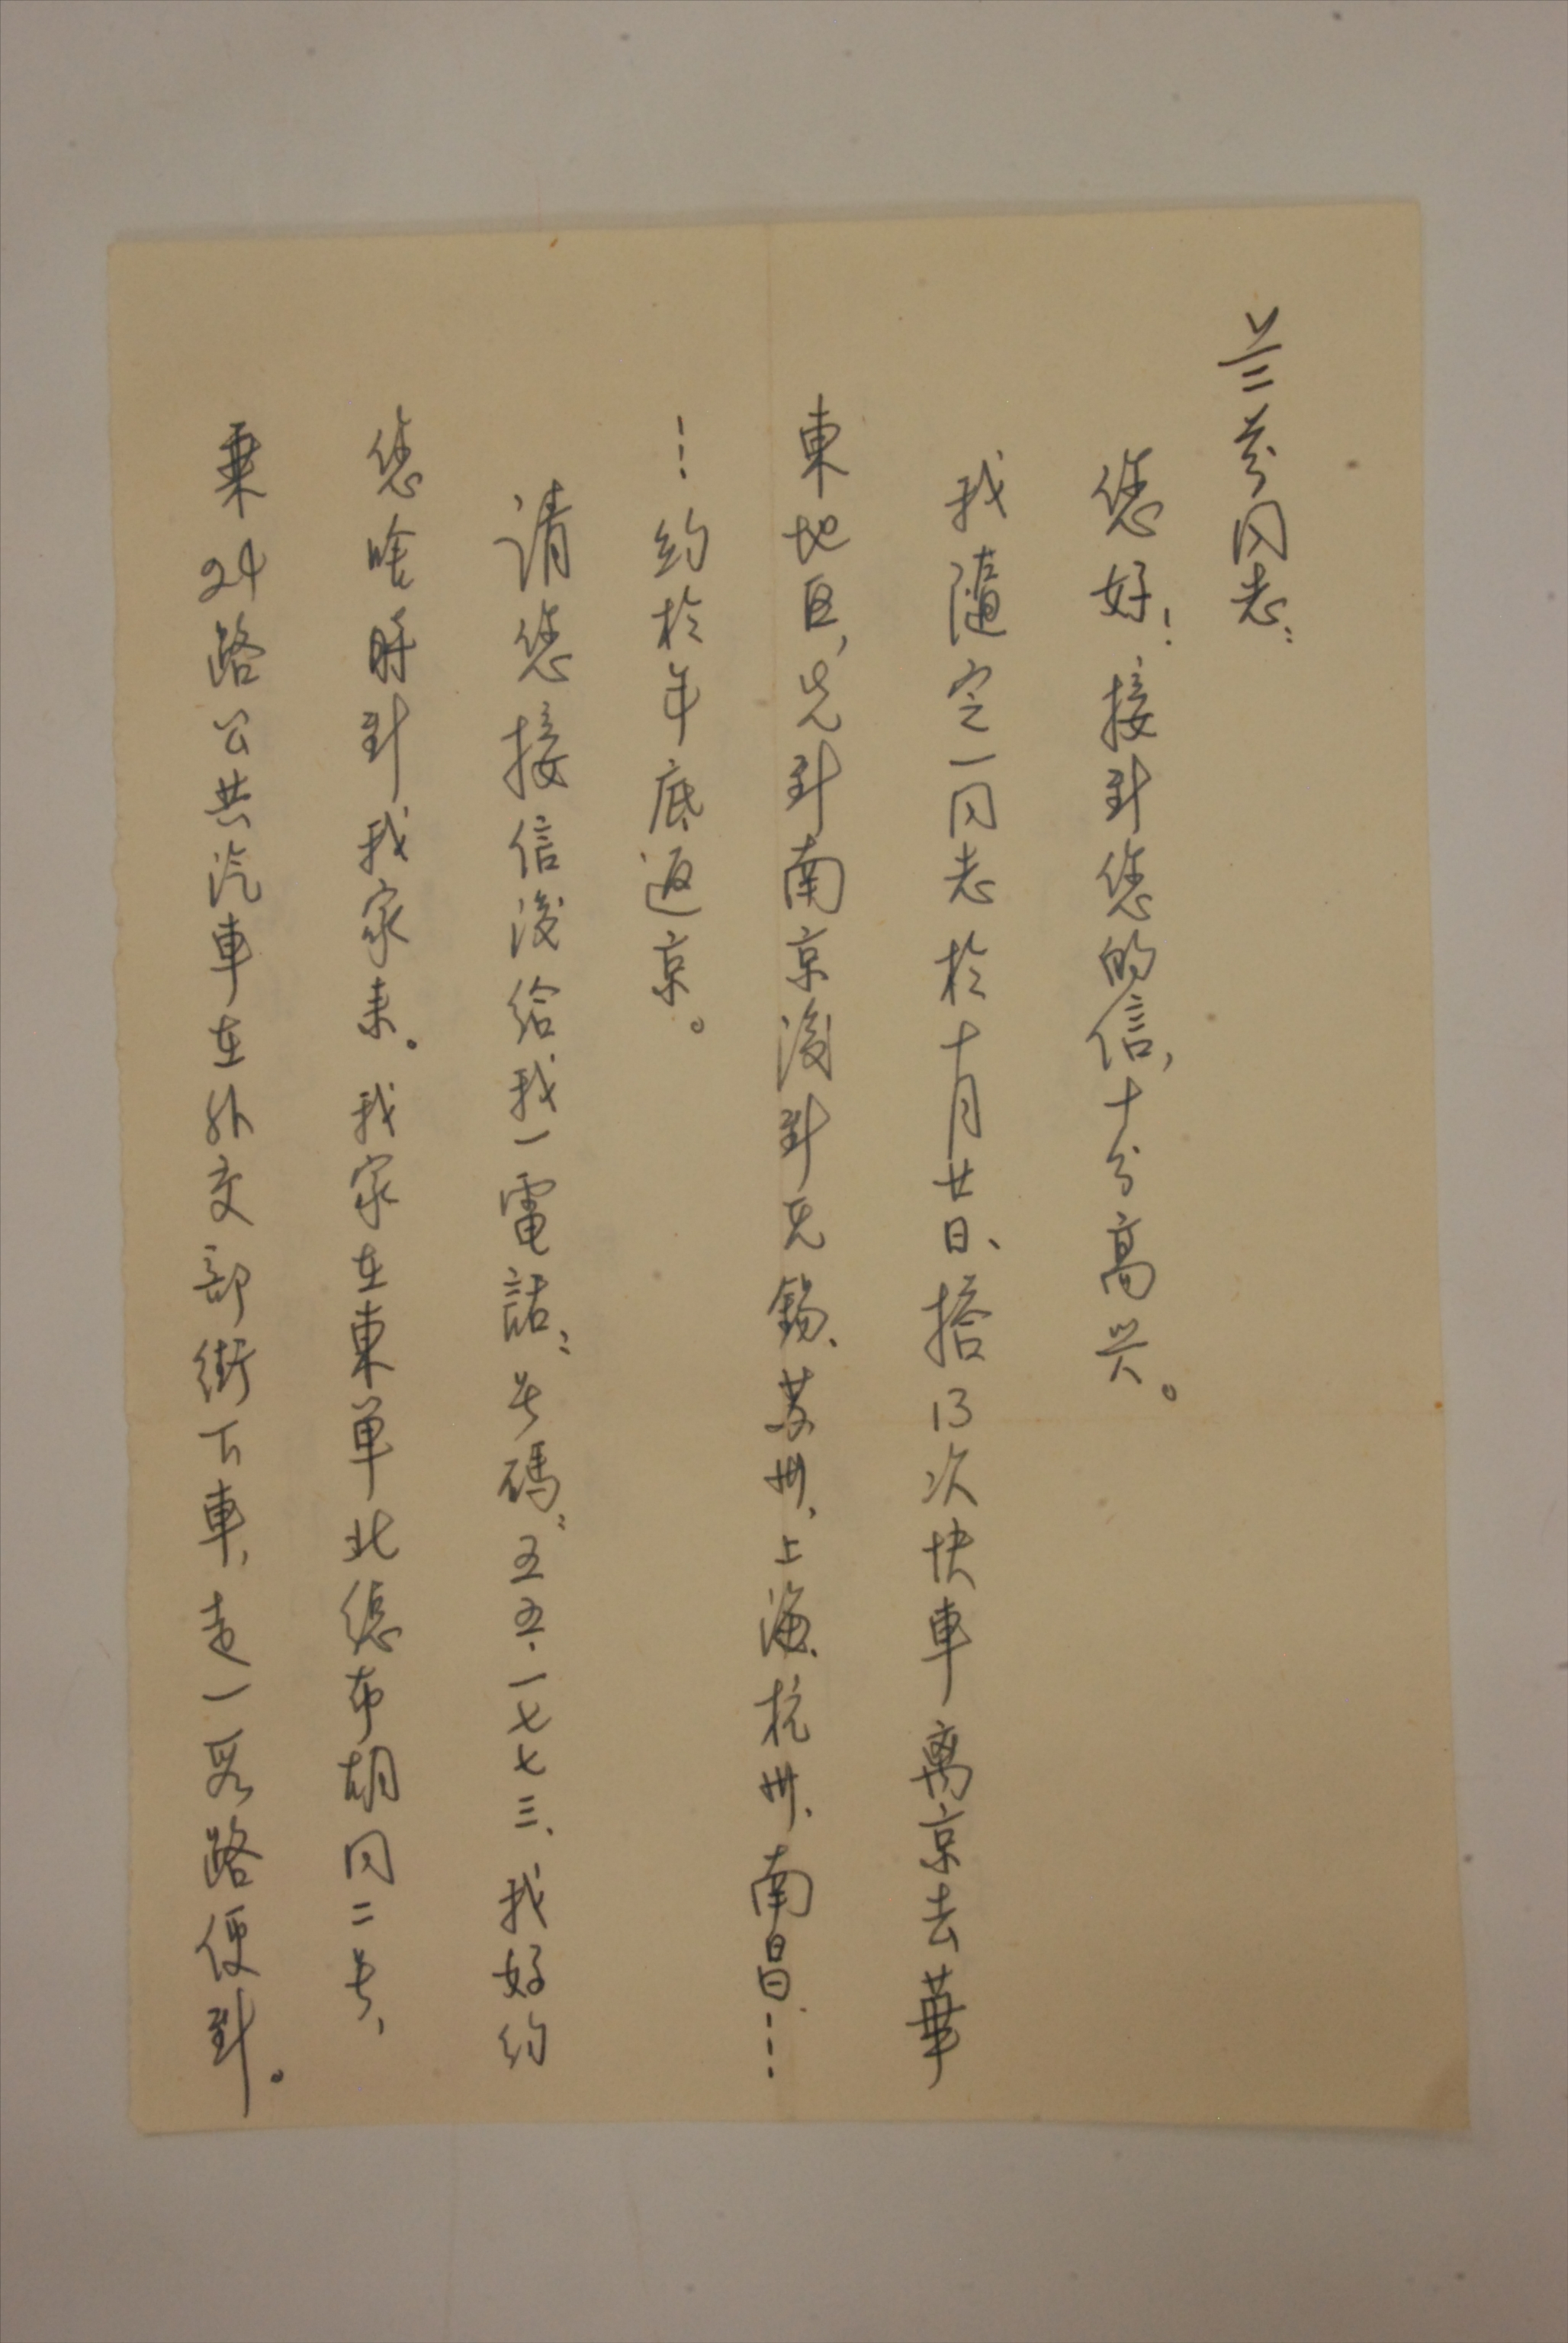 兰芬同志：
您好！接到您的信，十分高兴。
我随定一同志於十月廿日、搭13次快車离京去華
東地区，先到南京後到无錫、苏州、上海、杭州、南昌……
……約於年底返京。
请您接信後給我一電話：号碼：五五·一七七三、我好约
您啥時到我家来。我家在東单北總布胡同二号、
乘24路公共汽車在外交部街下車，走一段路便到。